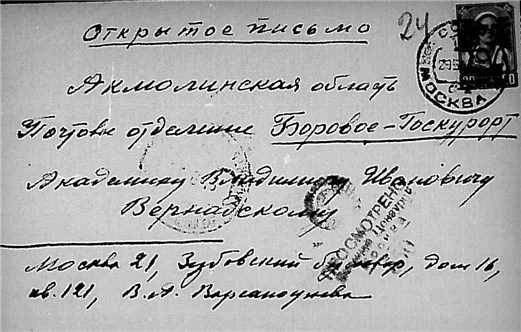 Открытое письмо
24
МОСКВА
Акмолинская область
Почтовое отделение Боровое-Госкурорт
Академику Владимиру Ивановичу
Вернадскому
ПРОСМОТРЕНО
Москва 21, Зубовский бульвар, дом 16,
кв. 121, В. А. Варсанофьева